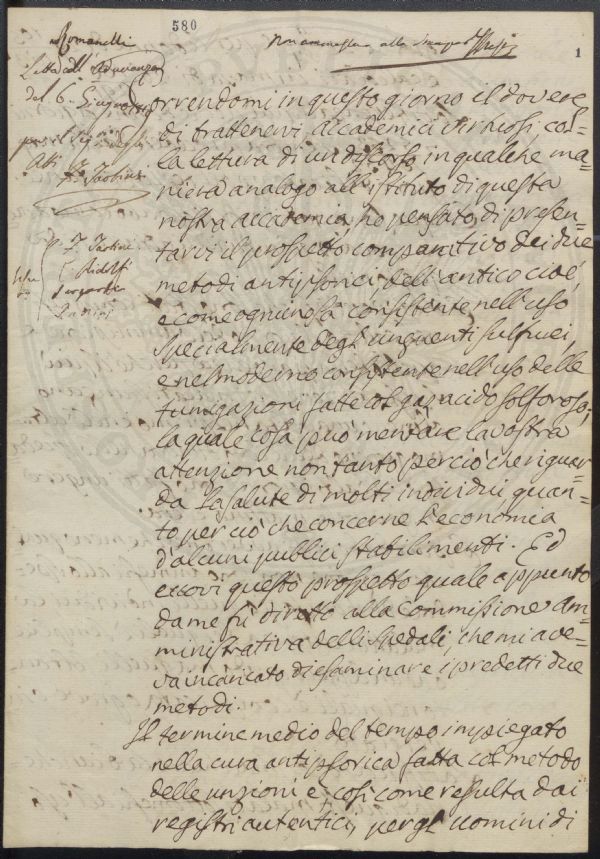 580
1
Romanelli
Letta nell' Adunanza
del 6. Giugno
Tartini
Ridolfi
Correndomi in questo giorno il dovere
di trattenervi accademici virtuosi, col-
la lettura di un discorso in qualche ma-
niera analogo all'istituto di questa
nostra accademia, ho pensato di presen-
tarvi il prospetto comparativo dei due
metodi antipsorici dell'antico cioè,
e come ognun sà consistente nell'uso
specialmente degl'unguenti sulfurei,
e nel moderno consistente nell'uso delle
fumigazioni fatte col gaz acido solforoso;
la quale cosa può meritare la vostra
attenzione non tanto per ciò che riguar-
da la salute di molti individui quan-
to per ciò che concerne l'economia
d'alcuni pubblici stabilimenti. Ed
eccovi questo prospetto quale appunto
da me fù diretto alla Commissione Am-
ministrativa delli Spedali, che mi ave-
va incaricato di esaminare i predetti due
metodi.
Il termine medio del tempo impiegato
nella cura antipsorica fatta col metodo
delle unzioni e, così come resulta dai
registri autentici, per gl'uomini di